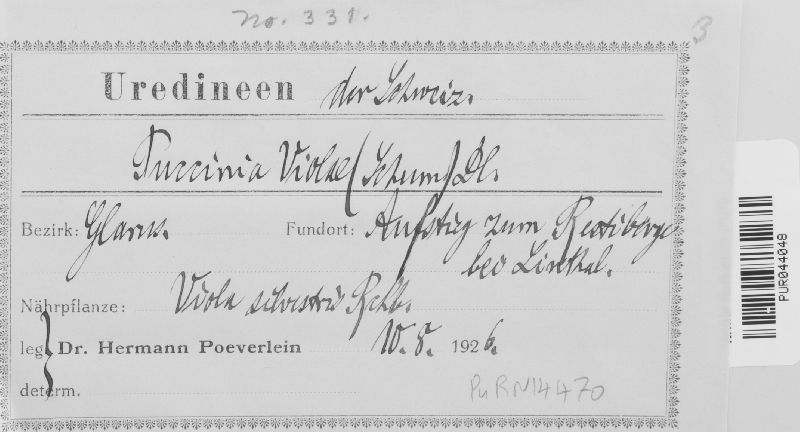 No. 331.
3
Uredineen der Schweiz.
Puccinia Violae (Schum) DC.
Bezirk: Glarus. Fundort: Aufstieg zum
bei Linthal.
Nährpflanze: Viola silvestris Rchb.
leg. Dr. Hermann Poeverlein 10. 8. 1926.
determ.
PuRN14470
PUR044048